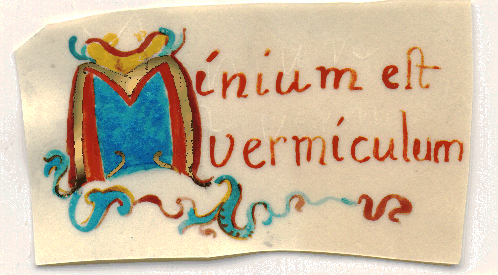 Minium eſt
vermiculum